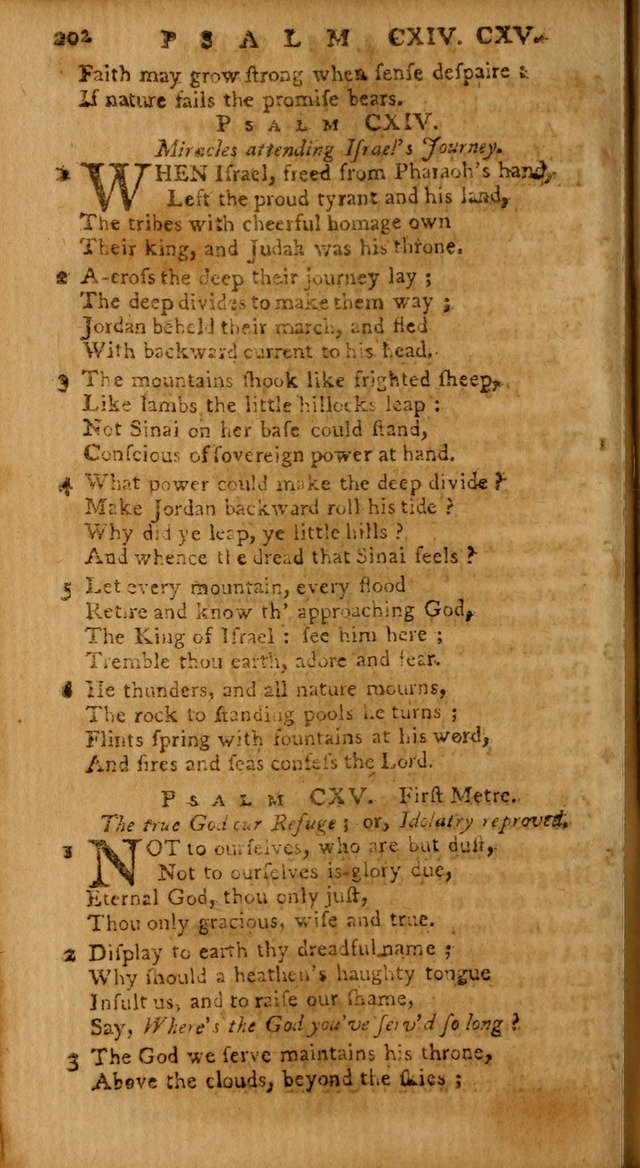 202 PSALM CXIV. CXV.
Faith may grow ſtrong when ſenſe deſpairs
If nature fails the promiſe bears.
PSALM CXIV.
Miracles attending Iſrael's Journey.
1 WHEN Iſrael, freed from Pharaoh's hand,
Left the proud tyrant and his land,
The tribes with cheerful homage own
Their king, and Judah was his throne.
2 A-croſs the deep their journey lay ;
The deep divides to make them way ;
Jordan beheld their march, and fled
With backward current to his head.
3 The mountains ſhook like frighted ſheep,
Like lambs the little hillocks leap :
Not Sinai on her baſe could ſtand,
Conſcious of ſovereign power at hand.
4 What power could make the deep divide ?
Make Jordan backward roll his tide ?
Why did ye leap, ye little hills ?
And whence the dread that Sinai feels ?
5 Let every mountain, every flood
Retire and know th' approaching God,
The King of Iſrael : ſee him here ;
Tremble thou earth, adore and fear.
6 He thunders, and all nature mourns,
The rock to ſtanding pools he turns ;
Flints ſpring with fountains at his word,
And fires and ſeas confeſs the Lord.
PSALM CXV. Firſt Metre.
The true God our Refuge ; or, Idolatry reproved.
1 NOT to ourſelves, who are but duſt,
Not to ourſelves is glory due,
Eternal God, thou only juſt,
Thou only gracious, wiſe and true.
2 Diſplay to earth thy dreadful name ;
Why ſhould a heathen's haughty tongue
Inſult us, and to raiſe our ſhame,
Say, Where's the God you've ſerv'd ſo long ?
3 The God we ſerve maintains his throne,
Above the clouds, beyond the ſkies ;